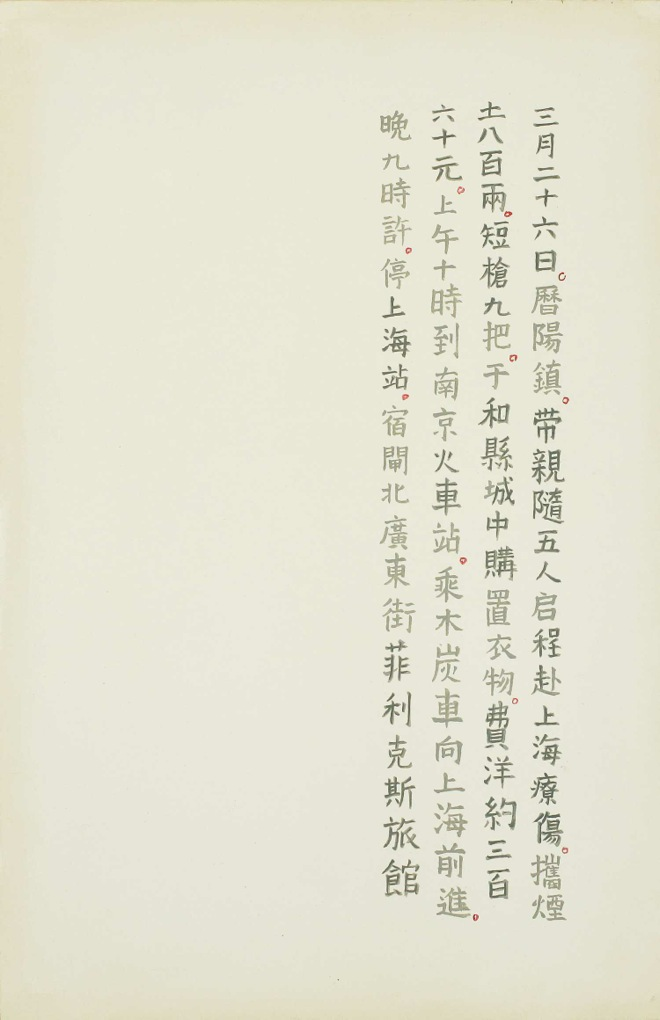 三月二十六日。曆陽鎮。带親隨五人启程赴上海療傷。攜煙
土八百兩。短槍九把。于和縣城中購置衣物。費洋約三百
六十元。上午十時到南京火車站。乘木炭車向上海前進。
晚九時許。停上海站。宿閘北廣東街菲利克斯旅館